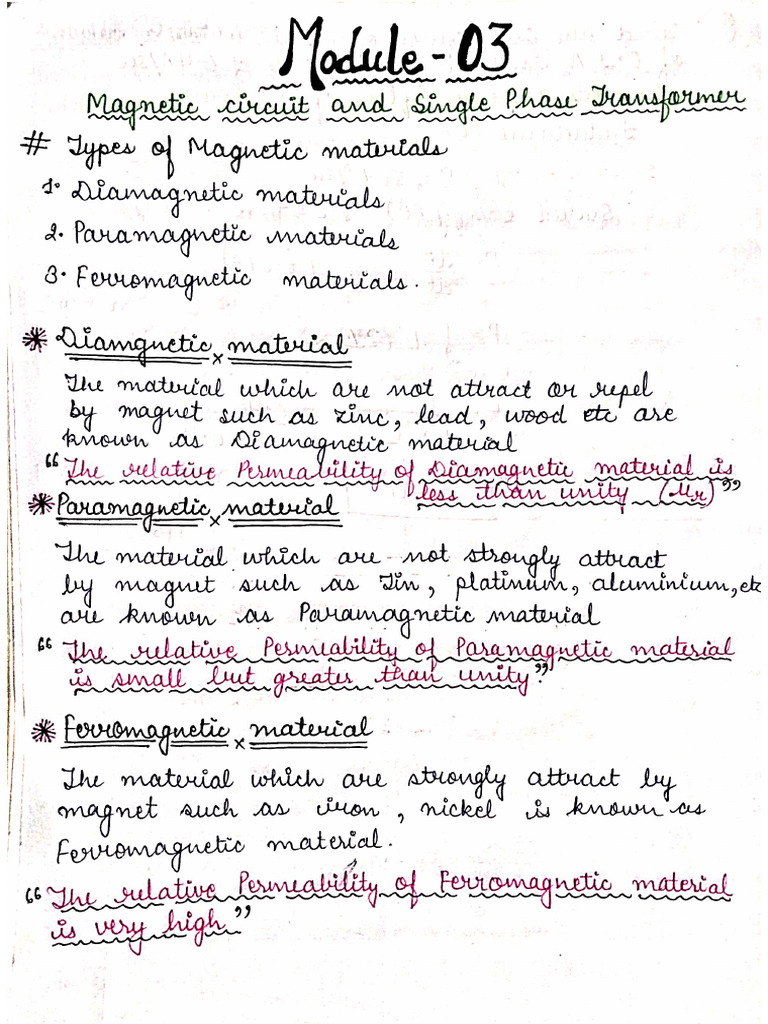 Module - 03
Magnetic circuit and Single Phase Transformer
# Types of Magnetic materials
1. Diamagnetic materials
2. Paramagnetic materials
3. Ferromagnetic materials.
* Diamgnetic x material
The material which are not attract or repel
by magnet such as zinc, lead, wood etc are
known as Diamagnetic material
“ The relative Permeability of Diamagnetic material is
less than unity (Mr)”
* Paramagnetic x material
The material which are not strongly attract
by magnet such as Tin, platinum, aluminium, etc
are known as Paramagnetic material
“ The relative Permeability of Paramagnetic material
is small but greater than unity”.
* Ferromagnetic x material
The material which are strongly attract by
magnet such as iron, nickel is known as
Ferromagnetic material.
“ The relative Permeability of Ferromagnetic material
is very high”